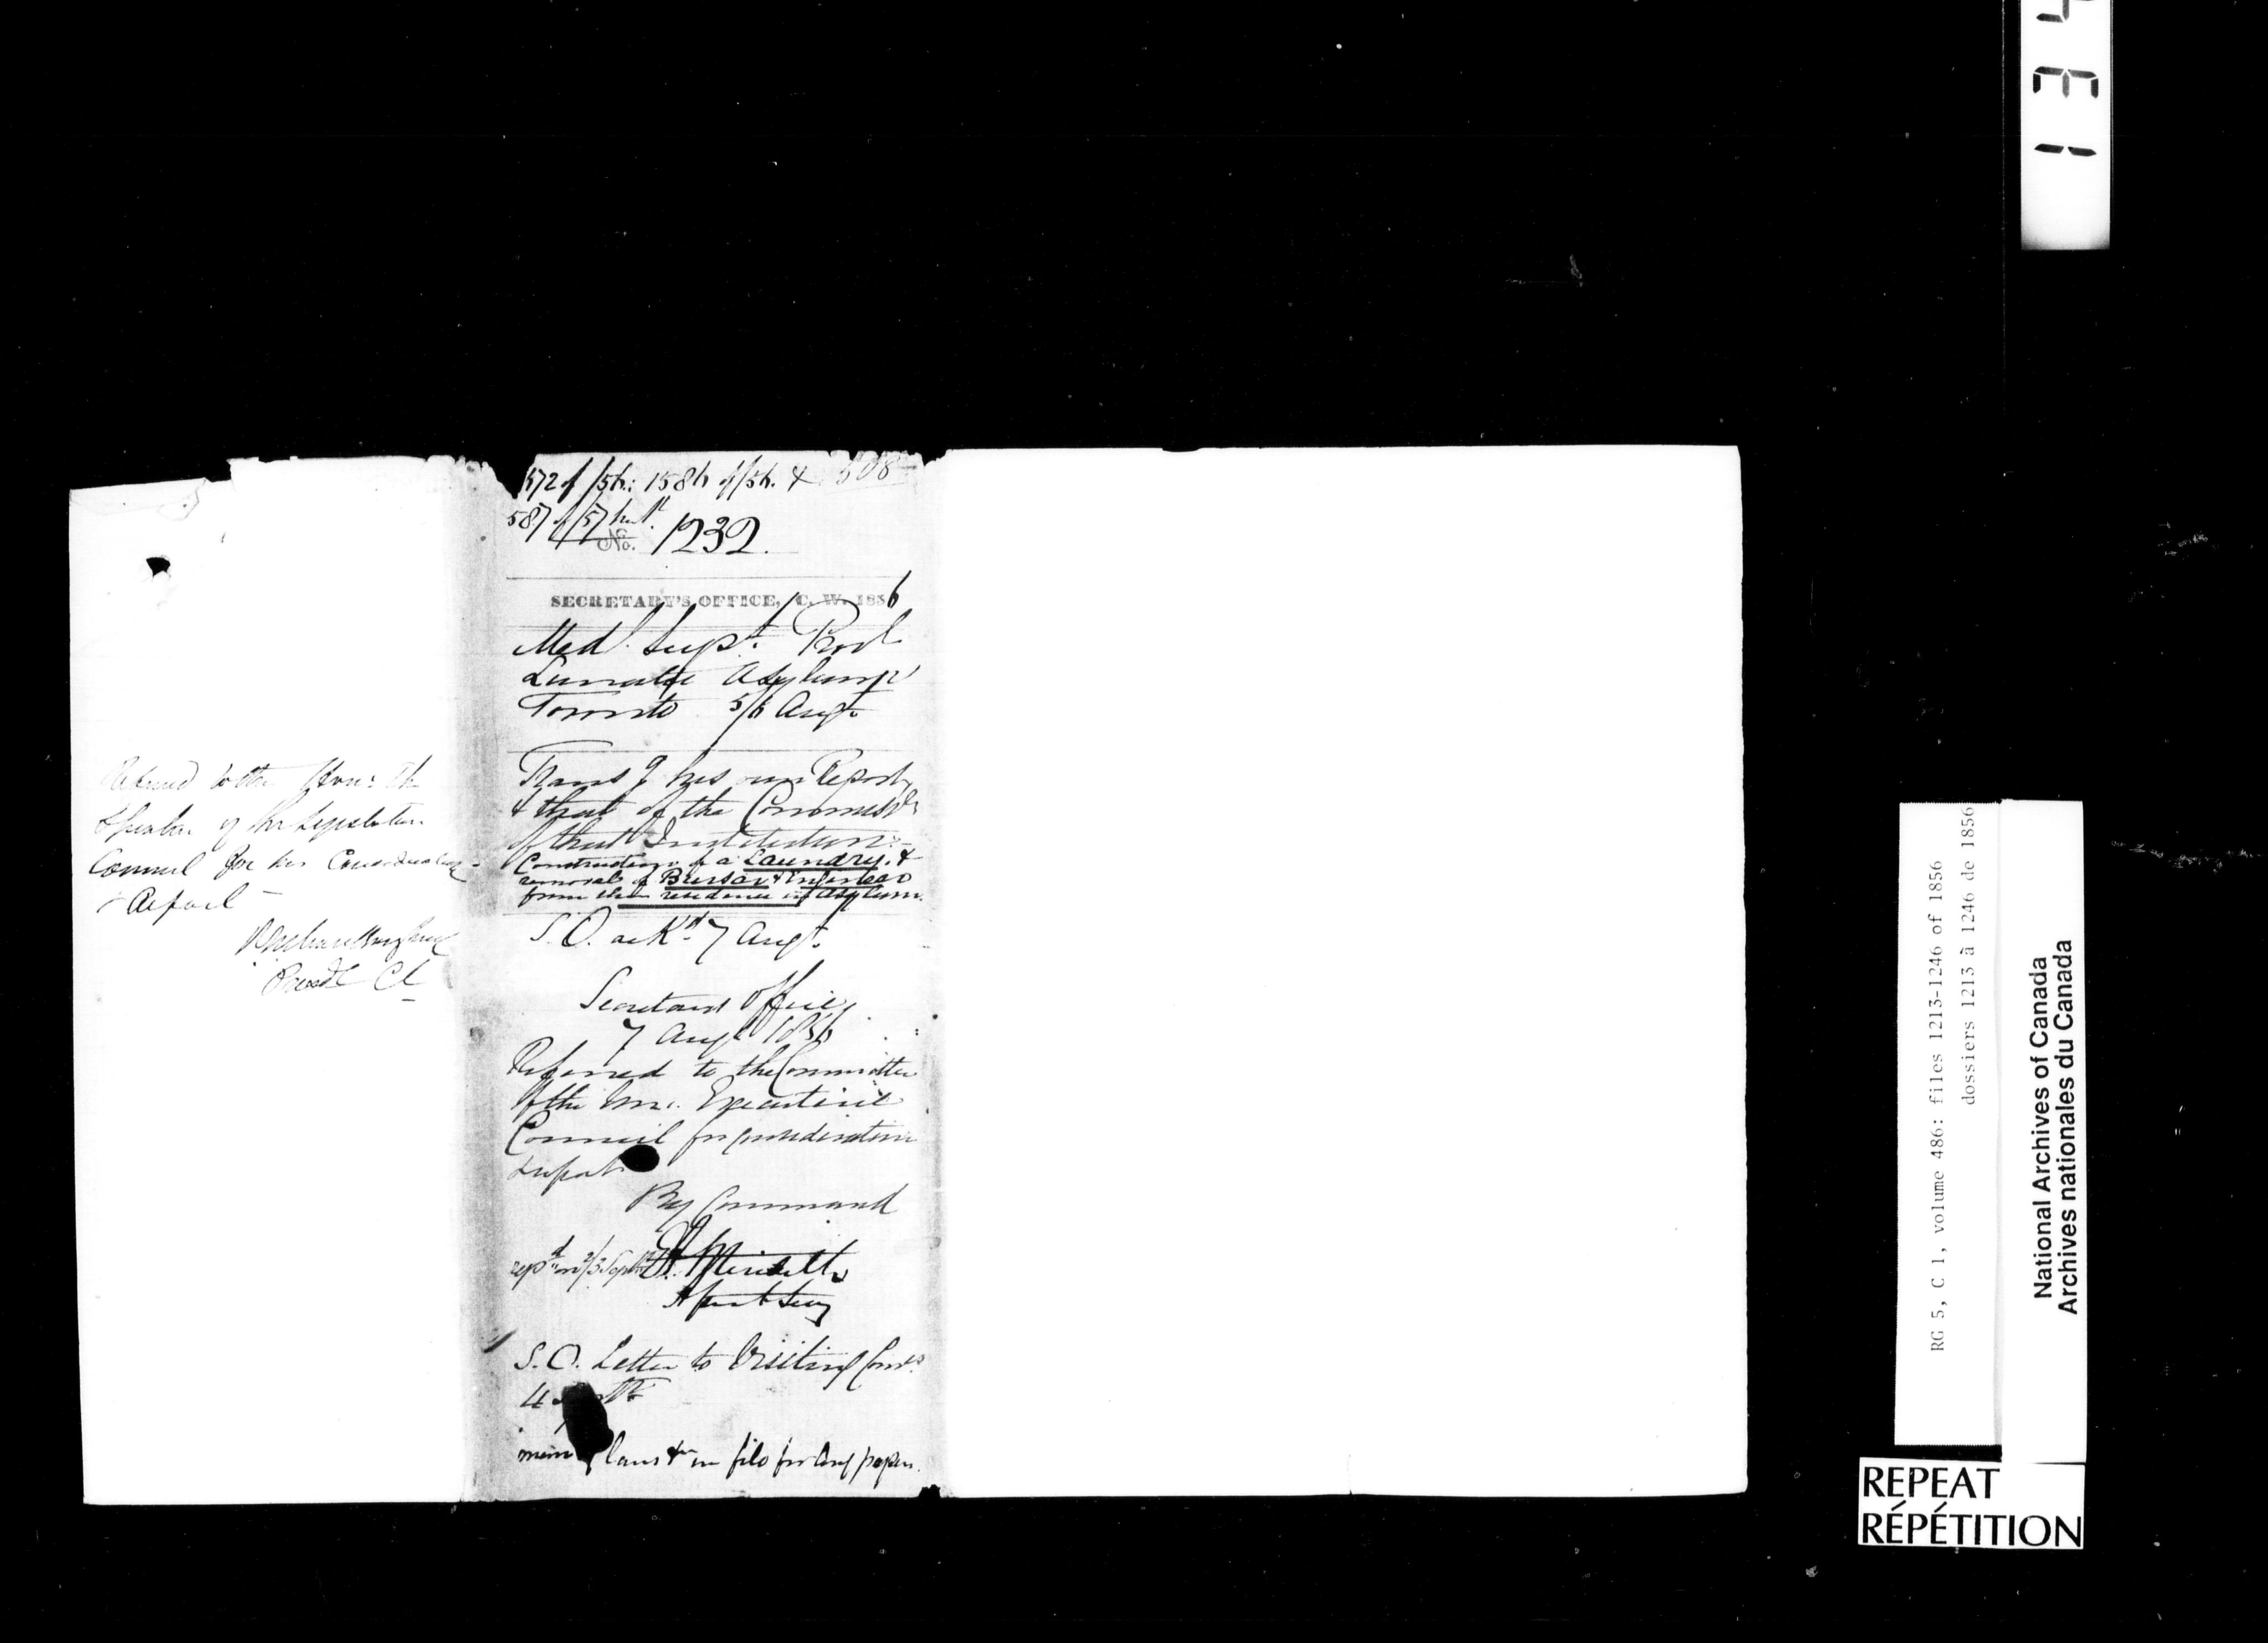 Referred to the Hon: the
Speaker of the Legislative
Council for his Consideration
& Report
Presdt
572 of /56: 1586 of /56. & 508
587 of /57
No. 1232.
SECRETARY'S OFFICE, C. W. 1856
Medl. Supt. Provl
Lunatic Asylum
Toronto 5/6 Augt
Transg his own Report
& that of the Commissrs
of that Institution:-
Construction of a Laundry, &
removal of Bursar &
from their residence in Asylum.
S. O. ackd 7 Augt.
Secretary's Office
7 Augt 1856
Referred to the Committee
of the Hon. Executive
Council for consideration
& report
By Command
repd on 2/3 Sept. Meredith
Asst Secy
S. O. Letter to Visiting Comrs
4
mem plans &c in file for Aug papers.
1 3 4
RG 5, C 1, volume 486: files 1213-1246 of 1856
dossiers 1213 à 1246 de 1856
National Archives of Canada
Archives nationales du Canada
REPEAT
RÉPÉTITION